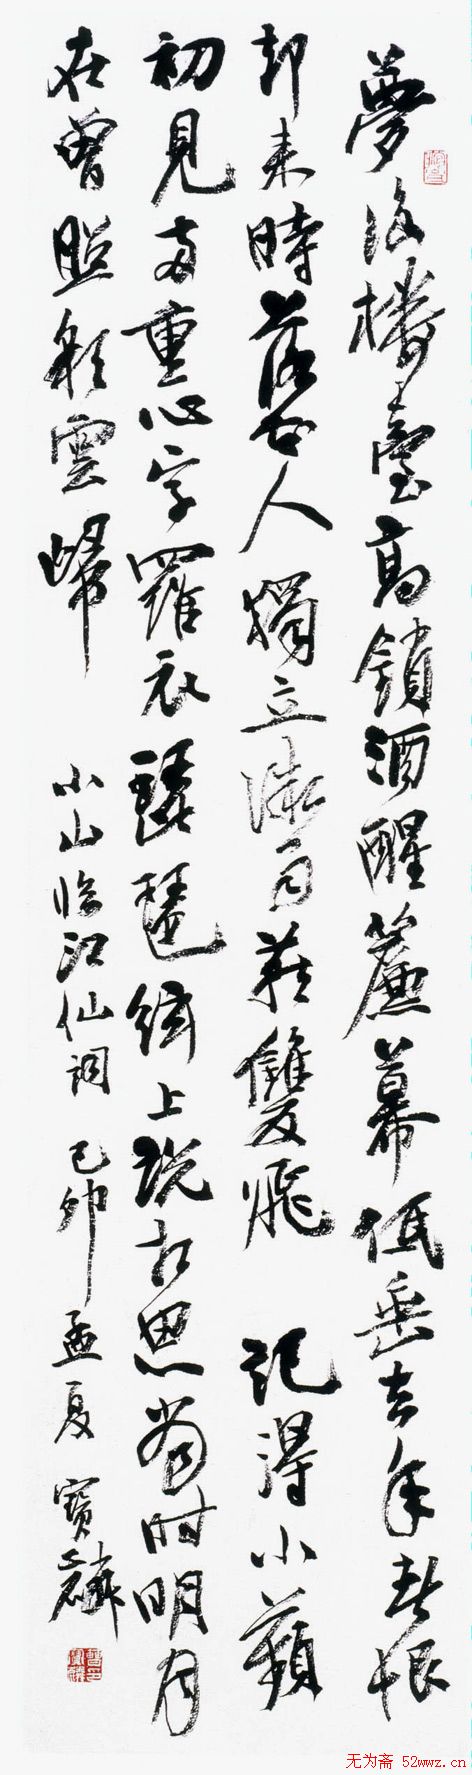 夢後樓臺高鎖酒醒簾幕低垂去年春恨
却来時落花人獨立微雨燕雙飛 記得小蘋
初見兩重心字羅衣琵琶絃上說相思當时明月
在曾照彩雲歸 小山臨江仙詞 己卯孟夏 寶麟
无为斋 52wwz.cn